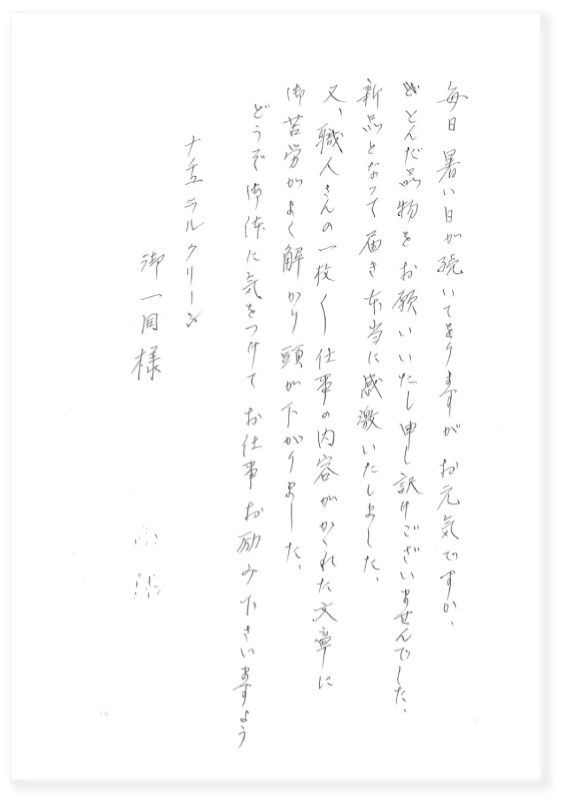 毎日暑い日が続いておりますがお元気ですか、
とんだ品物をお願いいたし申し訳けございませんでした、
新品となって届き本当に感激いたしました、
又、職人さんの一枚〱仕事の内容がかかれた文章に
御苦労がよく解かり頭が下がりました、
どうぞ御体に気をつけてお仕事お励み下さいますよう
ナチュラルクリーン
御一同様